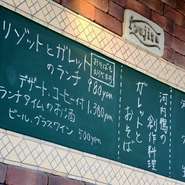 Fujiya
河内鴨の
創作料理
ガレットと
おそば
リゾットとガレット
のランチ
おそばも
あります
980yen
デザート、コーヒー付 1,380yen
ランチタイムのお酒
ビール、グラスワイン 500yen